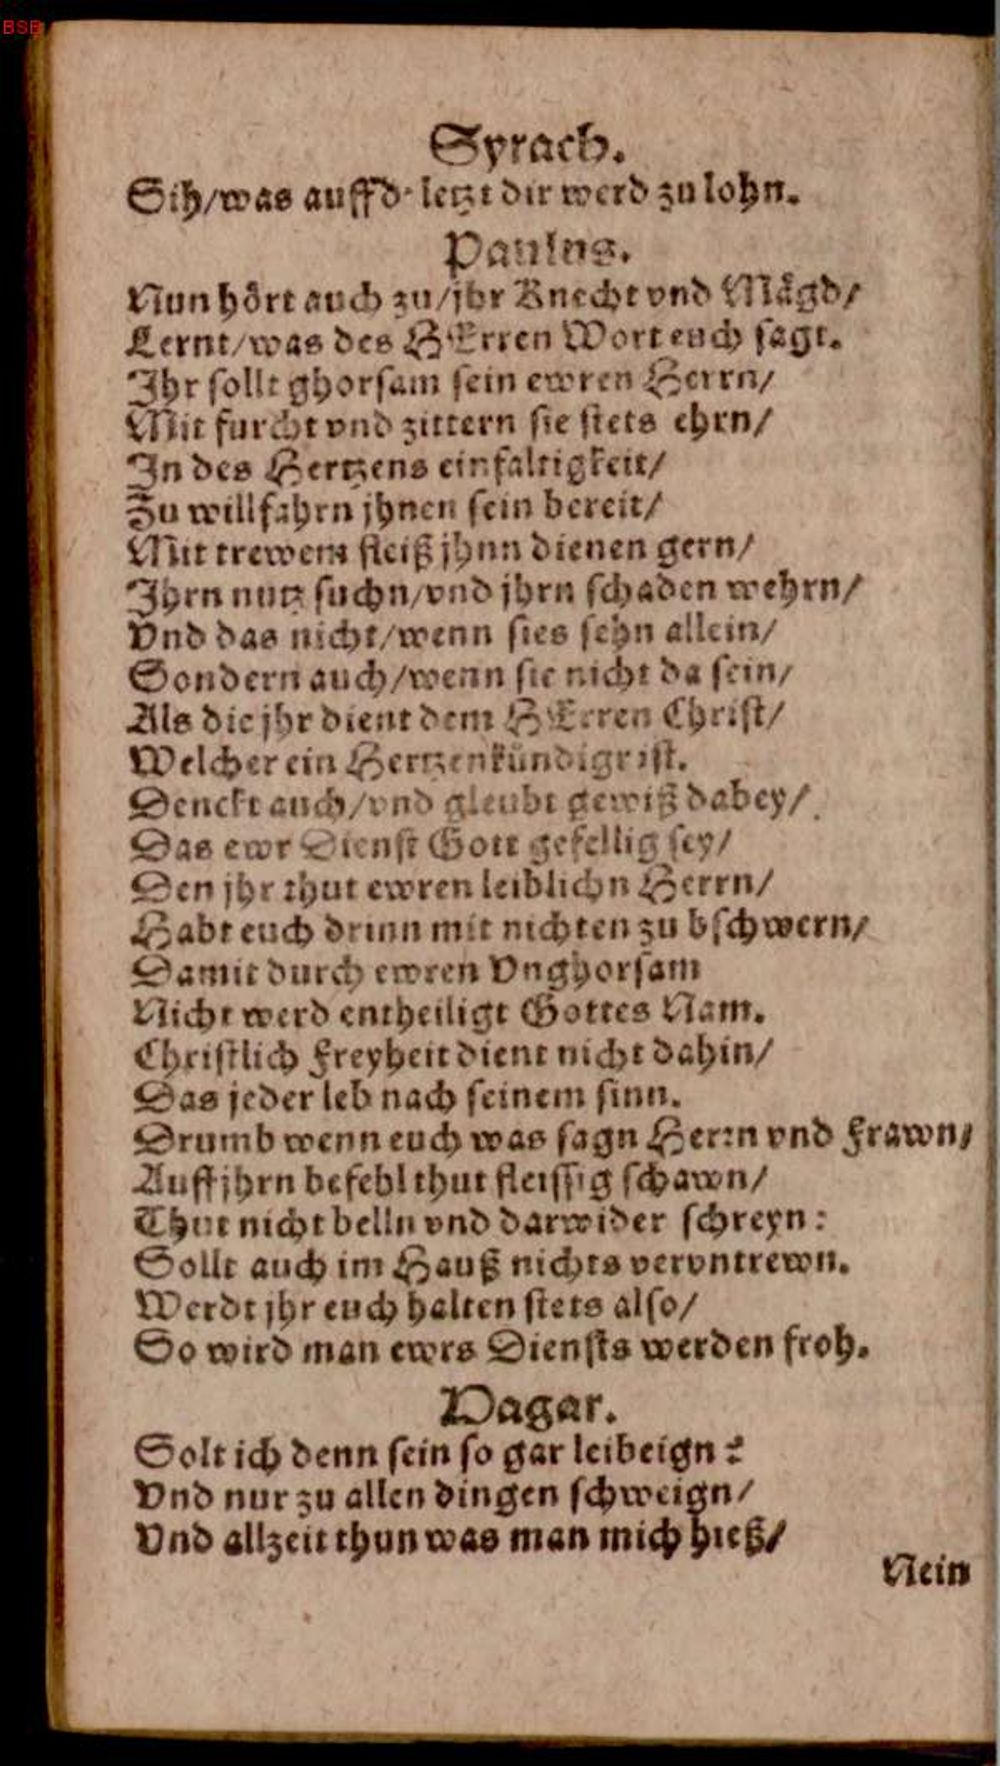 BSB
Syrach.
Sih/was auff d' letzt dir werd zu lohn.
Paulus.
Nun hört auch zu/jhr Knecht vnd Mägd/
Lernt/was des HErren Wort euch sagt.
Ihr sollt ghorsam sein ewren Herrn/
Mit furcht vnd zittern sie stets ehrn/
In des Hertzens einfaltigkeit/
Zu willfahrn jhnen sein bereit/
Mit trewem fleiß jhnn dienen gern/
Ihrn nutz suchn/vnd jhrn schaden wehrn/
Vnd das nicht/wenn sies sehn allein/
Sondern auch/wenn sie nicht da sein/
Als die jhr dient dem HErren Christ/
Welcher ein Hertzenkündigr ist.
Denckt auch/vnd gleubt gewiß dabey/
Das ewr Dienst Gott gefellig sey/
Den jhr thut ewren leiblichn Herrn/
Habt euch drinn mit nichten zu bschwern/
Damit durch ewren Vnghorsam
Nicht werd entheiligt Gottes Nam.
Christlich Freyheit dient nicht dahin/
Das jeder leb nach seinem sinn.
Drumb wenn euch was sagn Herrn vnd Frawn/
Auff jhrn befehl thut fleissig schawn/
Thut nicht belln vnd darwider schreyn:
Sollt auch im Hauß nichts vervntrewn.
Werdt jhr euch halten stets also/
So wird man ewrs Diensts werden froh.
Hagar.
Solt ich denn sein so gar leibeign?
Vnd nur zu allen dingen schweign/
Vnd allzeit thun was man mich hieß/
Nein